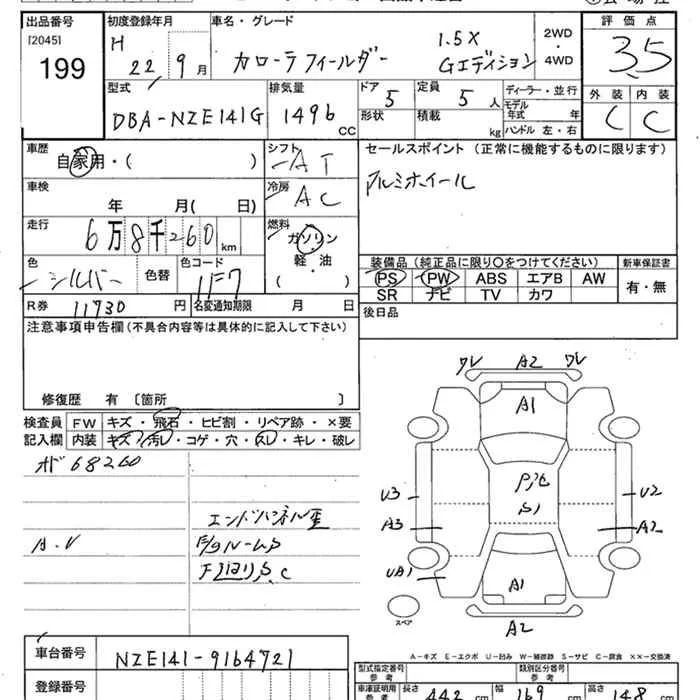 出品番号 初度登録年月 車名・グレード 評価点
[2045] H 22 9月 カローラフィールダー 1.5X Gエディション 2WD・4WD 3.5
199
型式 排気量 ドア 定員 ディーラー・並行 外装 内装
DBA-NZE141G 1496 CC 5 5人 モデル年式 年 C C
形状 積載 kg ハンドル 左・右
車歴 シフト セールスポイント(正常に機能するものに限ります)
自家用・( ) AT アルミホイール
車検 冷房
年 月( 日) AC
走行 燃料
6万8千260km ガソリン
軽・油
( )
装備品(純正品に限り○をつけてください) 新車保証書
色 色替 色コード PS PW ABS エアB AW 有・無
シルバー 1F7 SR ナビ TV カワ
R券 11730円 名変通知期限 月 日 後日品
注意事項申告欄(不具合内容等は具体的に記入して下さい)
修復歴 有 〔箇所 〕
検査員 FW キズ・飛石・ヒビ割・リペア跡・×要
記入欄 内装 キズ・汚レ・コゲ・穴・スレ・キレ・破レ
ワレ A2 ワレ
A1
U3 U2
A3 A2
UA1
A1
スペア A2
オド 68260
A.V
A-キズ E-エクボ U-凹み W-補修跡 S-サビ C-腐食 ××-交換済
車台番号 NZE141-9164721
登録番号
型式指定番号 参考 類別区分番号 参考
車庫証明用 参考 長さ 442 cm 幅 169 cm 高さ 148 cm